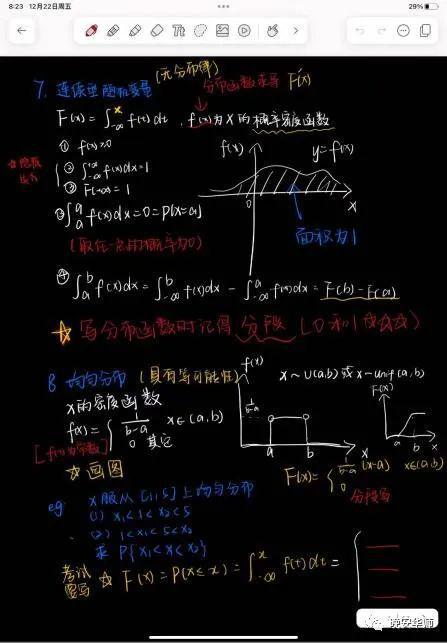 8:23 12月22日周五
29%
7. 连续型随机变量 (无分布律)
分布函数求导 F'(x)
F(x) = ∫_{-∞}^{x} f(t)dt , f(x)为X的概率密度函数
① f(x)≥0
② ∫_{-∞}^{+∞} f(x)dx=1
F(+∞) = 1
③ ∫_{a}^{a} f(x)dx=0=P{X=a}
(取任一点的概率为0)
f(x)
y=f(x)
0
x
面积为1
④ ∫_{a}^{b} f(x)dx=∫_{-∞}^{b} f(x)dx − ∫_{-∞}^{a} f(x)dx = F(b)-F(a)
☆ 写分布函数时记得分段 (0和1
8 均匀分布 (具有等可能性)
X的密度函数
f(x)= { 1/(b-a) x∈(a,b)
0 其它
[f(x)为常数]
☆画图
f(x)
1/(b-a)
a b x
X~U(a,b) 或 X~Unif(a,b)
F(x)
a b x
F(x)= { 1/(b-a) (x-a) x∈(a,b)
0
分段写
eg: X服从[1,5]上均匀分布
(1) x₁<1<x₂<5
(2) 1<x₁<5<x₂
求 P{x₁<X<x₂}
考试
要写 ☆ F(x) = P(X≤x) = ∫_{-∞}^{x} f(t)dt = {
晚安华师